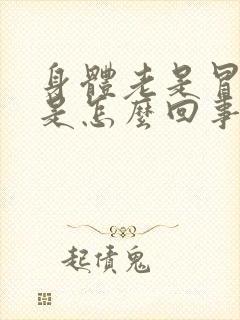 身體老是冒
是怎麼回事
起債鬼